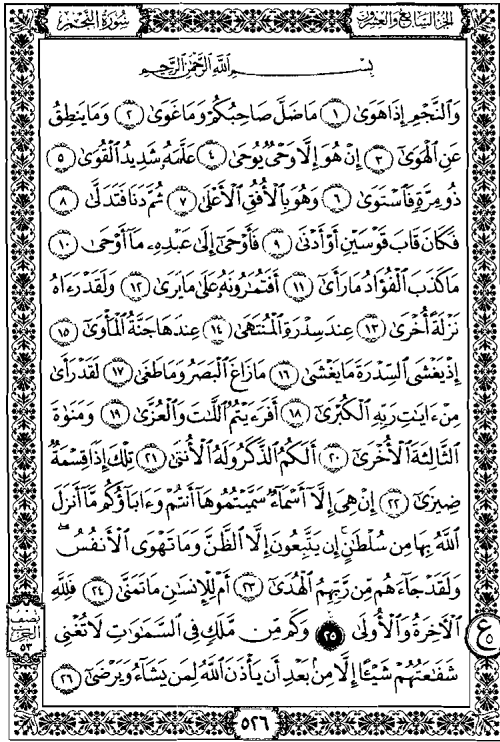 الجزء السابع والعشرون سورة النجم
بِسْمِ اللَّهِ الرَّحْمَٰنِ الرَّحِيمِ
وَٱلنَّجْمِ إِذَا هَوَىٰ ١ مَا ضَلَّ صَاحِبُكُمْ وَمَا غَوَىٰ ٢ وَمَا يَنطِقُ
عَنِ ٱلْهَوَىٰٓ ٣ إِنْ هُوَ إِلَّا وَحْىٌ يُوحَىٰ ٤ عَلَّمَهُۥ شَدِيدُ ٱلْقُوَىٰ ٥
ذُو مِرَّةٍ فَٱسْتَوَىٰ ٦ وَهُوَ بِٱلْأُفُقِ ٱلْأَعْلَىٰ ٧ ثُمَّ دَنَا فَتَدَلَّىٰ ٨
فَكَانَ قَابَ قَوْسَيْنِ أَوْ أَدْنَىٰ ٩ فَأَوْحَىٰٓ إِلَىٰ عَبْدِهِۦ مَآ أَوْحَىٰ ١٠
مَا كَذَبَ ٱلْفُؤَادُ مَا رَأَىٰٓ ١١ أَفَتُمَٰرُونَهُۥ عَلَىٰ مَا يَرَىٰ ١٢ وَلَقَدْ رَءَاهُ
نَزْلَةً أُخْرَىٰ ١٣ عِندَ سِدْرَةِ ٱلْمُنتَهَىٰ ١٤ عِندَهَا جَنَّةُ ٱلْمَأْوَىٰٓ ١٥
إِذْ يَغْشَى ٱلسِّدْرَةَ مَا يَغْشَىٰ ١٦ مَا زَاغَ ٱلْبَصَرُ وَمَا طَغَىٰ ١٧ لَقَدْ رَأَىٰ
مِنْ ءَايَٰتِ رَبِّهِ ٱلْكُبْرَىٰٓ ١٨ أَفَرَءَيْتُمُ ٱللَّٰتَ وَٱلْعُزَّىٰ ١٩ وَمَنَوٰةَ
ٱلثَّالِثَةَ ٱلْأُخْرَىٰٓ ٢٠ أَلَكُمُ ٱلذَّكَرُ وَلَهُ ٱلْأُنثَىٰ ٢١ تِلْكَ إِذًا قِسْمَةٌ
ضِيزَىٰٓ ٢٢ إِنْ هِىَ إِلَّآ أَسْمَآءٌ سَمَّيْتُمُوهَآ أَنتُمْ وَءَابَآؤُكُم مَّآ أَنزَلَ
ٱللَّهُ بِهَا مِن سُلْطَٰنٍ ۚ إِن يَتَّبِعُونَ إِلَّا ٱلظَّنَّ وَمَا تَهْوَى ٱلْأَنفُسُ ۖ
وَلَقَدْ جَآءَهُم مِّن رَّبِّهِمُ ٱلْهُدَىٰٓ ٢٣ أَمْ لِلْإِنسَٰنِ مَا تَمَنَّىٰ ٢٤ فَلِلَّهِ
ٱلْءَاخِرَةُ وَٱلْأُولَىٰ ٢٥ وَكَم مِّن مَّلَكٍ فِى ٱلسَّمَٰوَٰتِ لَا تُغْنِى
شَفَٰعَتُهُمْ شَيْـًٔا إِلَّا مِنۢ بَعْدِ أَن يَأْذَنَ ٱللَّهُ لِمَن يَشَآءُ وَيَرْضَىٰٓ ٢٦
نصف
الحزب
٥٣
ع
٥
٥٢٦